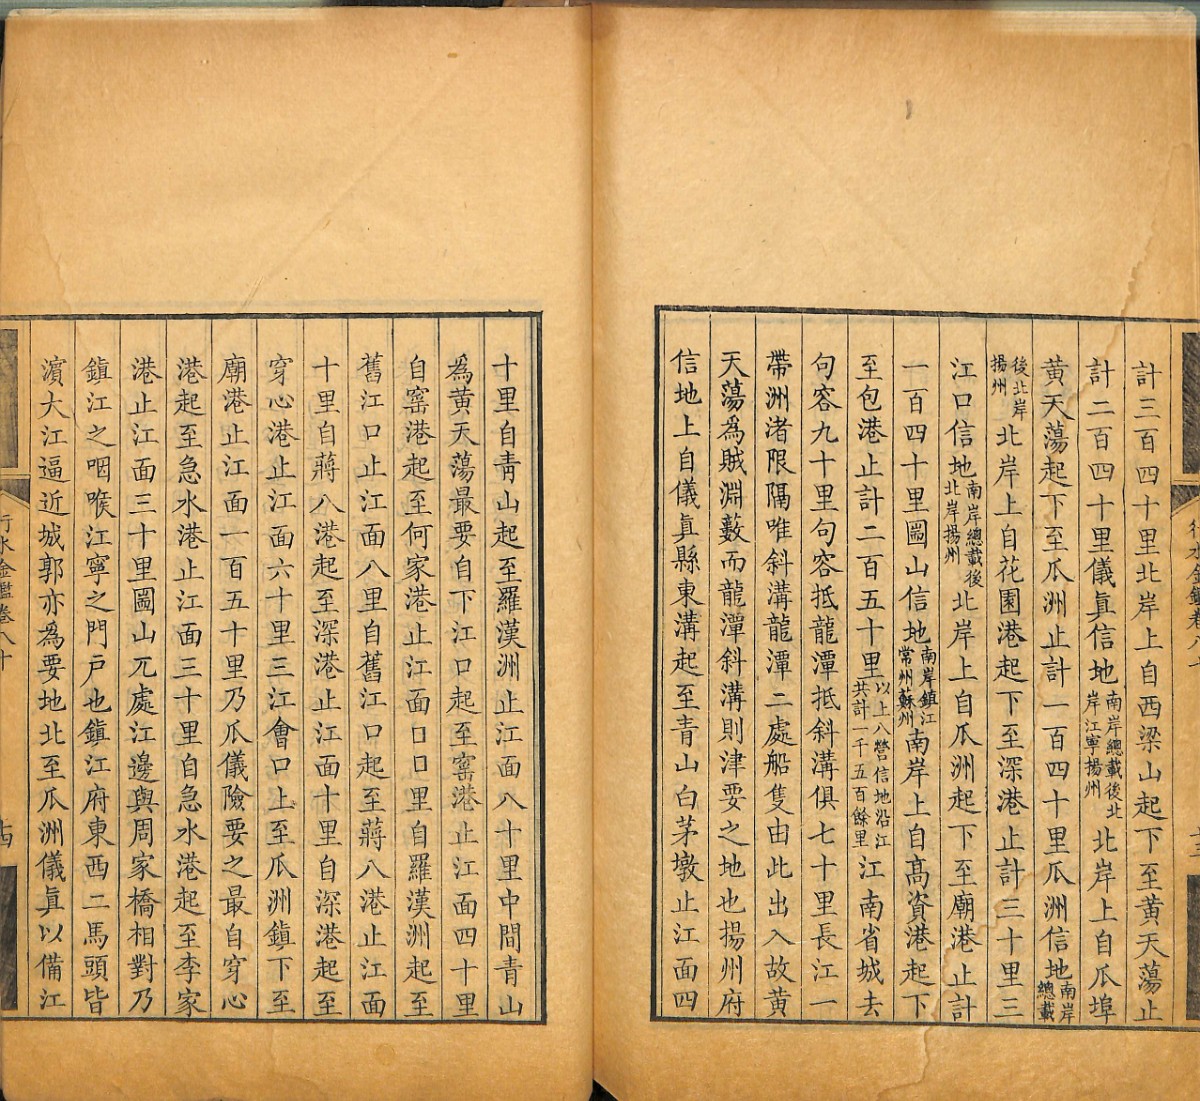 計三百四十里北岸上自西梁山起下至黃天蕩止
計二百四十里儀眞信地南岸總載後北岸江寧揚州北岸上自瓜埠
黃天蕩起下至瓜洲止計一百四十里瓜洲信地南岸總載
後北岸揚州北岸上自花園港起下至深港止計三十里三
江口信地南岸總載後北岸揚州北岸上自瓜洲起下至廟港止計
一百四十里圌山信地南岸鎮江常州蘇州南岸上自高資港起下
至包港止計二百五十里以上八營信地沿江共計一千五百餘里江南省城去
句容九十里句容抵龍潭抵斜溝俱七十里長江一
帶洲渚限隔唯斜溝龍潭二處船隻由此出入故黃
天蕩爲賊淵藪而龍潭斜溝則津要之地也揚州府
信地上自儀眞縣東溝起至青山白茅墩止江面四
十里自青山起至羅漢洲止江面八十里中間青山
爲黃天蕩最要自下江口起至窰港止江面四十里
自窰港起至何家港止江面口口里自羅漢洲起至
舊江口止江面八里自舊江口起至蔣八港止江面
十里自蔣八港起至深港止江面十里自深港起至
穿心港止江面六十里三江會口上至瓜洲鎮下至
廟港止江面一百五十里乃瓜儀險要之最自穿心
港起至急水港止江面三十里自急水港起至李家
港止江面三十里圌山兀處江邊與周家橋相對乃
鎮江之咽喉江寧之門戶也鎮江府東西二馬頭皆
濱大江逼近城郭亦爲要地北至瓜洲儀眞以備江
行水金鑑卷八十
十四